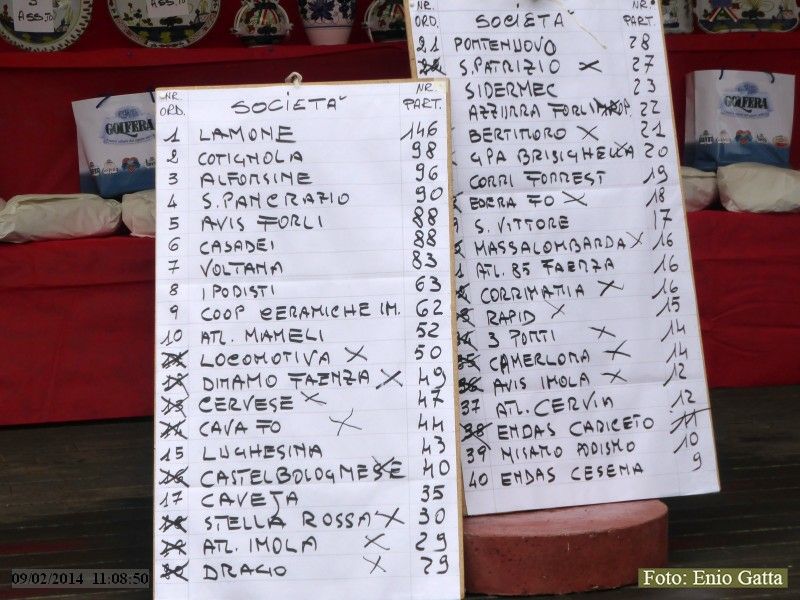 ASSTO
ASSTO
GOLFERA
GOLFERA
NR. ORD. SOCIETA' NR. PART.
1 LAMONE 146
2 COTIGNOLA 98
3 ALFONSINE 96
4 S. PANCRAZIO 90
5 AVIS FORLI 88
6 CASADEI 88
7 VOLTANA 83
8 I PODISTI 63
9 COOP CERAMICHE IM. 62
10 ATL. MAMELI 52
LOCOMOTIVA X 50
DINAMO FAENZA X 49
13 CERVESE X 47
14 CAVA FO X 44
15 LUGHESINA 43
16 CASTELBOLOGNESE X 40
17 CAVEJA 35
18 STELLA ROSSA X 30
ATL. IMOLA X 29
DRAGO X 29
NR. ORD. SOCIETA NR. PART.
21 PONTENUOVO 28
S. PATRIZIO X 27
SIDERMEC 23
AZZURRA FORLIMPOP. 22
BERTINORO X 21
GPA BRISIGHELLA X 20
CORRI FORREST 19
EDERA FO X 18
S. VITTORE 17
MASSALOMBARDA X 16
ATL. 85 FAENZA 16
CORRIMATIA X 16
RAPID X 15
3 PONTI X 14
35 CAMERLONA X 14
36 AVIS IMOLA X 12
37 ATL. CERVIA 12
38 ENDAS CARICETO 11
39 MISANO PODISMO 10
40 ENDAS CESENA 9
09/02/2014 11:08:50
Foto: Enio Gatta